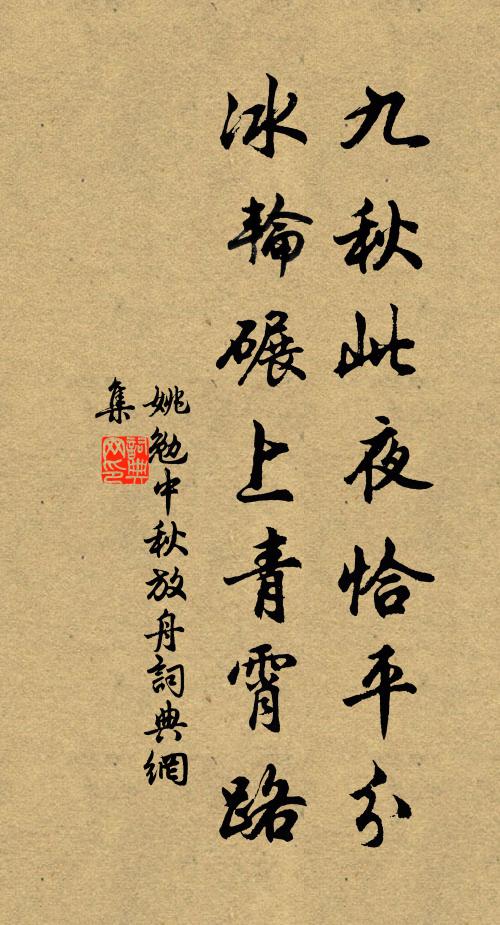 九秋此夜恰平分
冰輪碾上青霄路
姚勉中秋放舟詞典網
集
詞典
网印